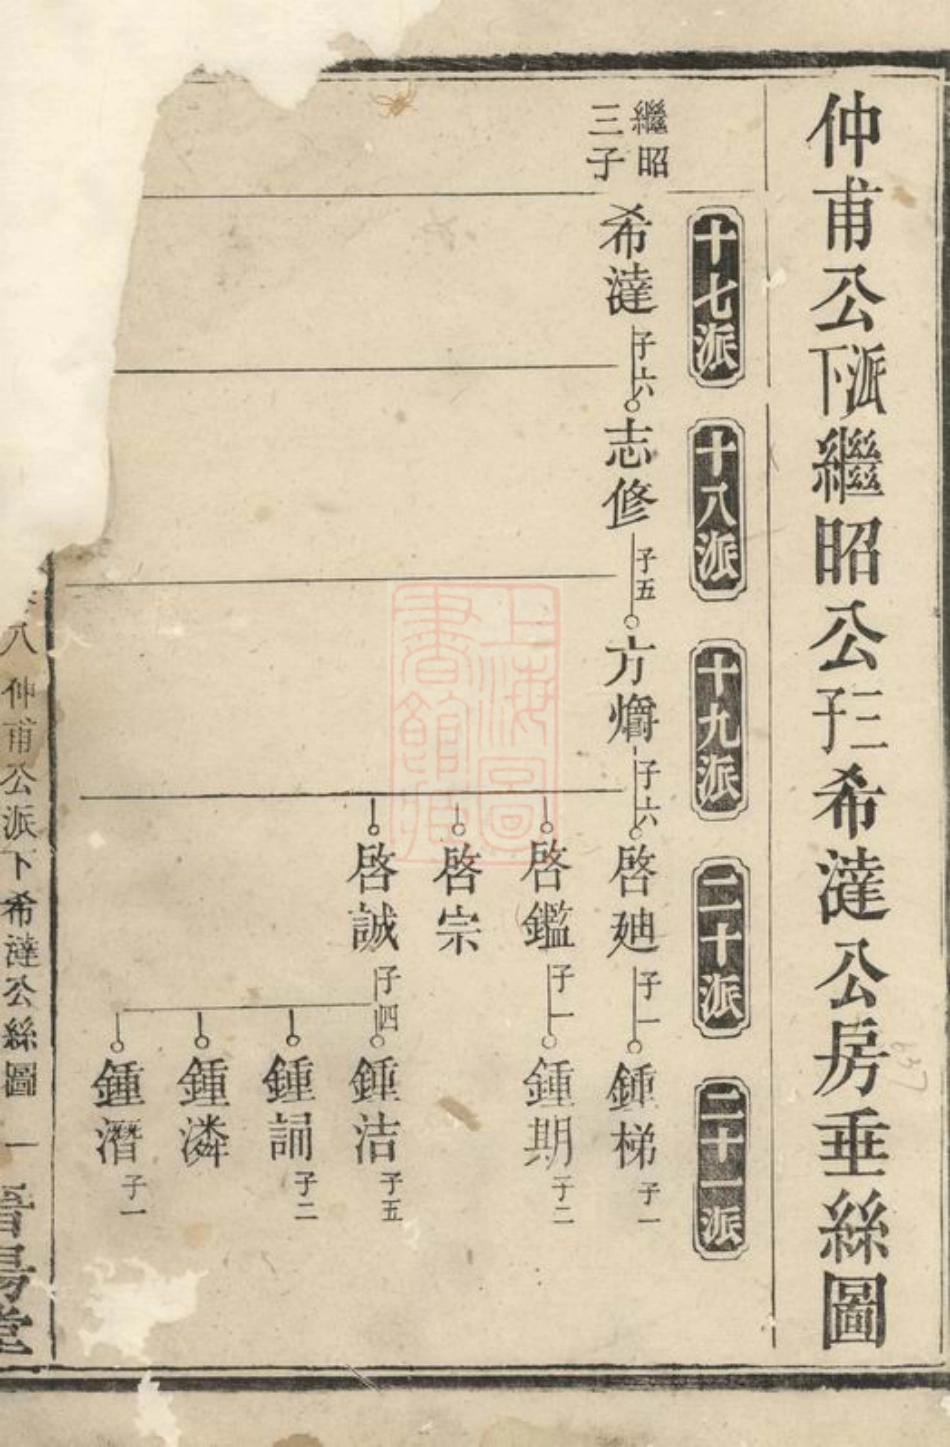 仲甫公派下繼昭公三子希澾公房垂絲圖
十七派
十八派
十九派
二十派
二十一派
繼昭
三子
希澾 子六
志修 子五
方爝 子六
啓廸 子一
鍾梯 子一
啓鑑 子一
鍾期 子二
啓宗
啓誠 子四
鍾洁 子五
鍾詞 子二
鍾潾
鍾潛 子一
八 仲甫公派下希澾公絲圖 一 晉昜堂
上海圖書館藏